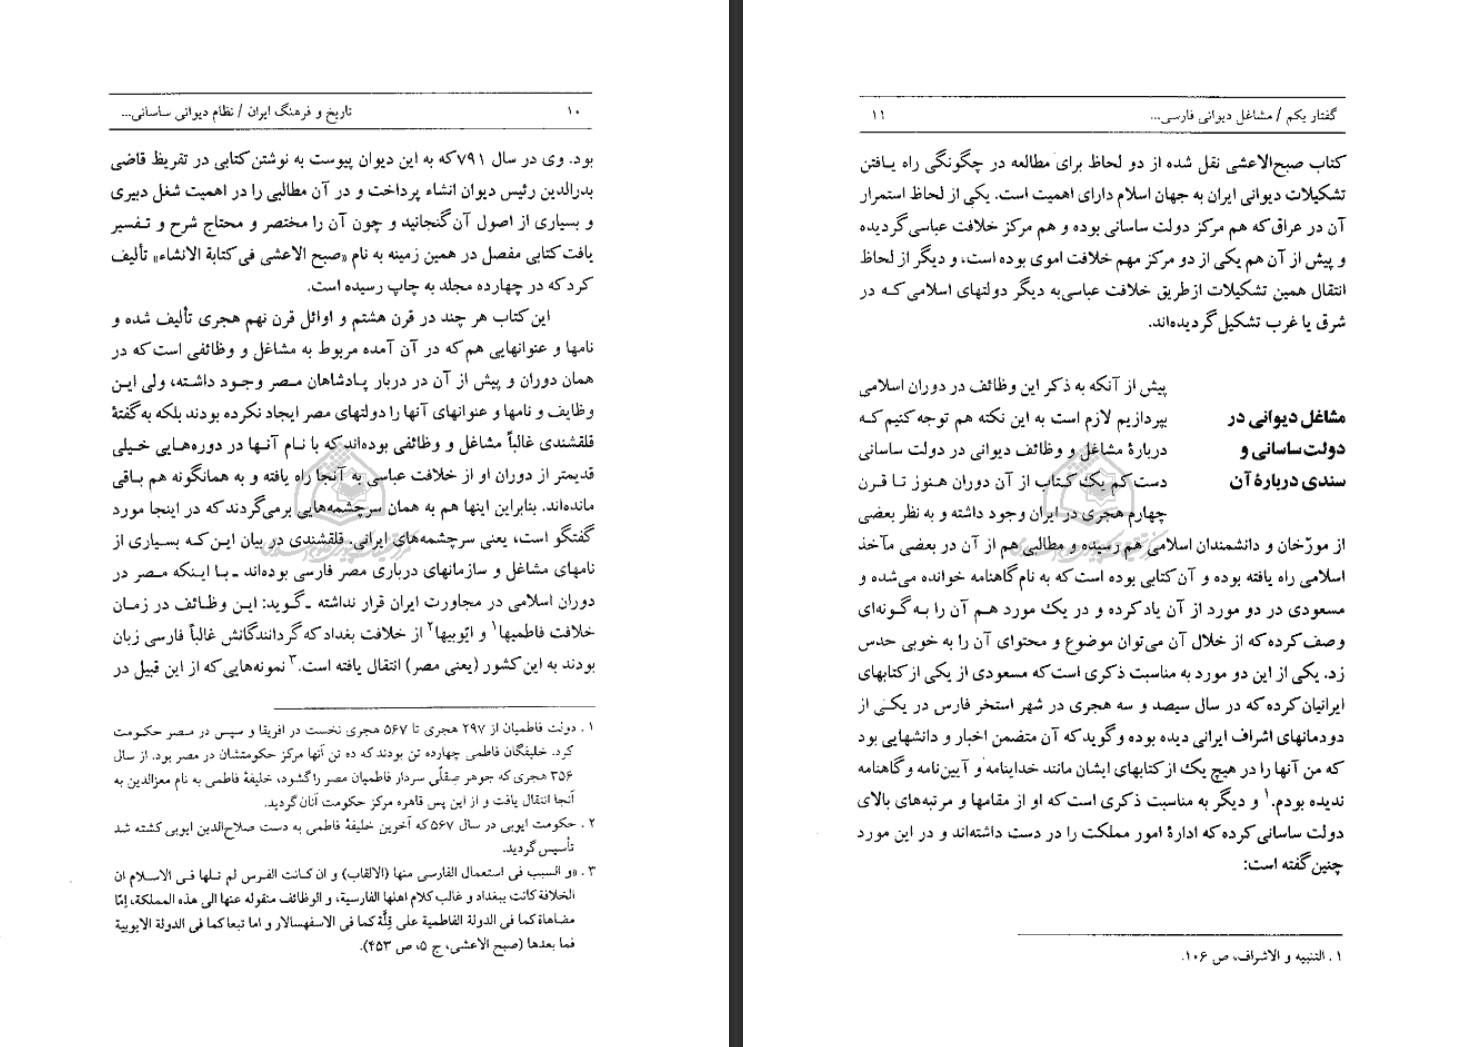 تاریخ و فرهنگ ایران / نظام دیوانی ساسانی... ۱۰
بود. وی در سال ۷۹۱ که به این دیوان پیوست به نوشتن کتابی در تفریظ قاضی
بدرالدین رئیس دیوان انشاء پرداخت و در آن مطالبی را در اهمیت شغل دبیری
و بسیاری از اصول آن گنجانید و چون آن را مختصر و محتاج شرح و تفسیر
یافت کتابی مفصل در همین زمینه به نام «صبح الاعشی فی کتابة الانشاء» تألیف
کرد که در چهارده مجلد به چاپ رسیده است.
این کتاب هر چند در قرن هشتم و اوائل قرن نهم هجری تألیف شده و
نامها و عنوانهایی هم که در آن آمده مربوط به مشاغل و وظائفی است که در
همان دوران و پیش از آن در دربار پادشاهان مصر وجود داشته، ولی این
وظایف و نامها و عنوانهای آنها را دولتهای مصر ایجاد نکرده بودند بلکه به گفتهٔ
قلقشندی غالباً مشاغل و وظائفی بوده‌اند که با نام آنها در دوره‌هایی خیلی
قدیمتر از دوران او از خلافت عباسی به آنجا راه یافته و به همانگونه هم باقی
مانده‌اند. بنابراین اینها هم به همان سرچشمه‌هایی برمی‌گردند که در اینجا مورد
گفتگو است، یعنی سرچشمه‌های ایرانی. قلقشندی در بیان این که بسیاری از
نامهای مشاغل و سازمانهای درباری مصر فارسی بوده‌اند ـ با اینکه مصر در
دوران اسلامی در مجاورت ایران قرار نداشته ـ گوید: این وظائف در زمان
خلافت فاطمیها۱ و ایّوبیها۲ از خلافت بغداد که گردانندگانش غالباً فارسی زبان
بودند به این کشور (یعنی مصر) انتقال یافته است.۳ نمونه‌هایی که از این قبیل در
۱. دولت فاطمیان از ۲۹۷ هجری تا ۵۶۷ هجری نخست در افریقا و سپس در مصر حکومت
کرد. خلیفگان فاطمی چهارده تن بودند که ده تن آنها مرکز حکومتشان در مصر بود. از سال
۳۵۶ هجری که جوهر صِقلّی سردار فاطمیان مصر را گشود، خلیفهٔ فاطمی به نام معزالدین به
آنجا انتقال یافت و از این پس قاهره مرکز حکومت آنان گردید.
۲. حکومت ایوبی در سال ۵۶۷ که آخرین خلیفهٔ فاطمی به دست صلاح‌الدین ایوبی کشته شد
تأسیس گردید.
۳. «و السبب فی استعمال الفارسی منها (الالقاب) و ان کانت الفرس لم تلها فی الاسلام ان
الخلافة کانت ببغداد و غالب کلام اهلها الفارسیة، و الوظائف منقوله عنها الی هذه المملکة، إمّا
مضاهاة کما فی الدولة الفاطمیة علی قِلَّة کما فی الاسفهسالار و اما تبعا کما فی الدولة الایوبیة
فما بعدها (صبح الاعشی، ج ۵، ص ۴۵۳).
گفتار یکم / مشاغل دیوانی فارسی... ۱۱
کتاب صبح‌الاعشی نقل شده از دو لحاظ برای مطالعه در چگونگی راه یافتن
تشکیلات دیوانی ایران به جهان اسلام دارای اهمیت است. یکی از لحاظ استمرار
آن در عراق که هم مرکز دولت ساسانی بوده و هم مرکز خلافت عباسی گردیده
و پیش از آن هم یکی از دو مرکز مهم خلافت اموی بوده است، و دیگر از لحاظ
انتقال همین تشکیلات از طریق خلافت عباسی به دیگر دولتهای اسلامی که در
شرق یا غرب تشکیل گردیده‌اند.
مشاغل دیوانی در
دولت ساسانی و
سندی دربارهٔ آن
پیش از آنکه به ذکر این وظائف در دوران اسلامی
بپردازیم لازم است به این نکته هم توجه کنیم که
دربارهٔ مشاغل و وظائف دیوانی در دولت ساسانی
دست کم یک کتاب از آن دوران هنوز تا قرن
چهارم هجری در ایران وجود داشته و به نظر بعضی
از مورّخان و دانشمندان اسلامی هم رسیده و مطالبی هم از آن در بعضی مآخذ
اسلامی راه یافته بوده و آن کتابی بوده است که به نام گاهنامه خوانده می‌شده و
مسعودی در دو مورد از آن یاد کرده و در یک مورد هم آن را به گونه‌ای
وصف کرده که از خلال آن می‌توان موضوع و محتوای آن را به خوبی حدس
زد. یکی از این دو مورد به مناسبت ذکری است که مسعودی از یکی از کتابهای
ایرانیان کرده که در سال سیصد و سه هجری در شهر استخر فارس در یکی از
دودمانهای اشراف ایرانی دیده بوده و گوید که آن متضمن اخبار و دانشهایی بود
که من آنها را در هیچ یک از کتابهای ایشان مانند خداینامه و آیین‌نامه و گاهنامه
ندیده بودم.۱ و دیگر به مناسبت ذکری است که او از مقامها و مرتبه‌های بالای
دولت ساسانی کرده که ادارهٔ امور مملکت را در دست داشته‌اند و در این مورد
چنین گفته است:
۱. التنبیه و الاشراف، ص ۱۰۶.